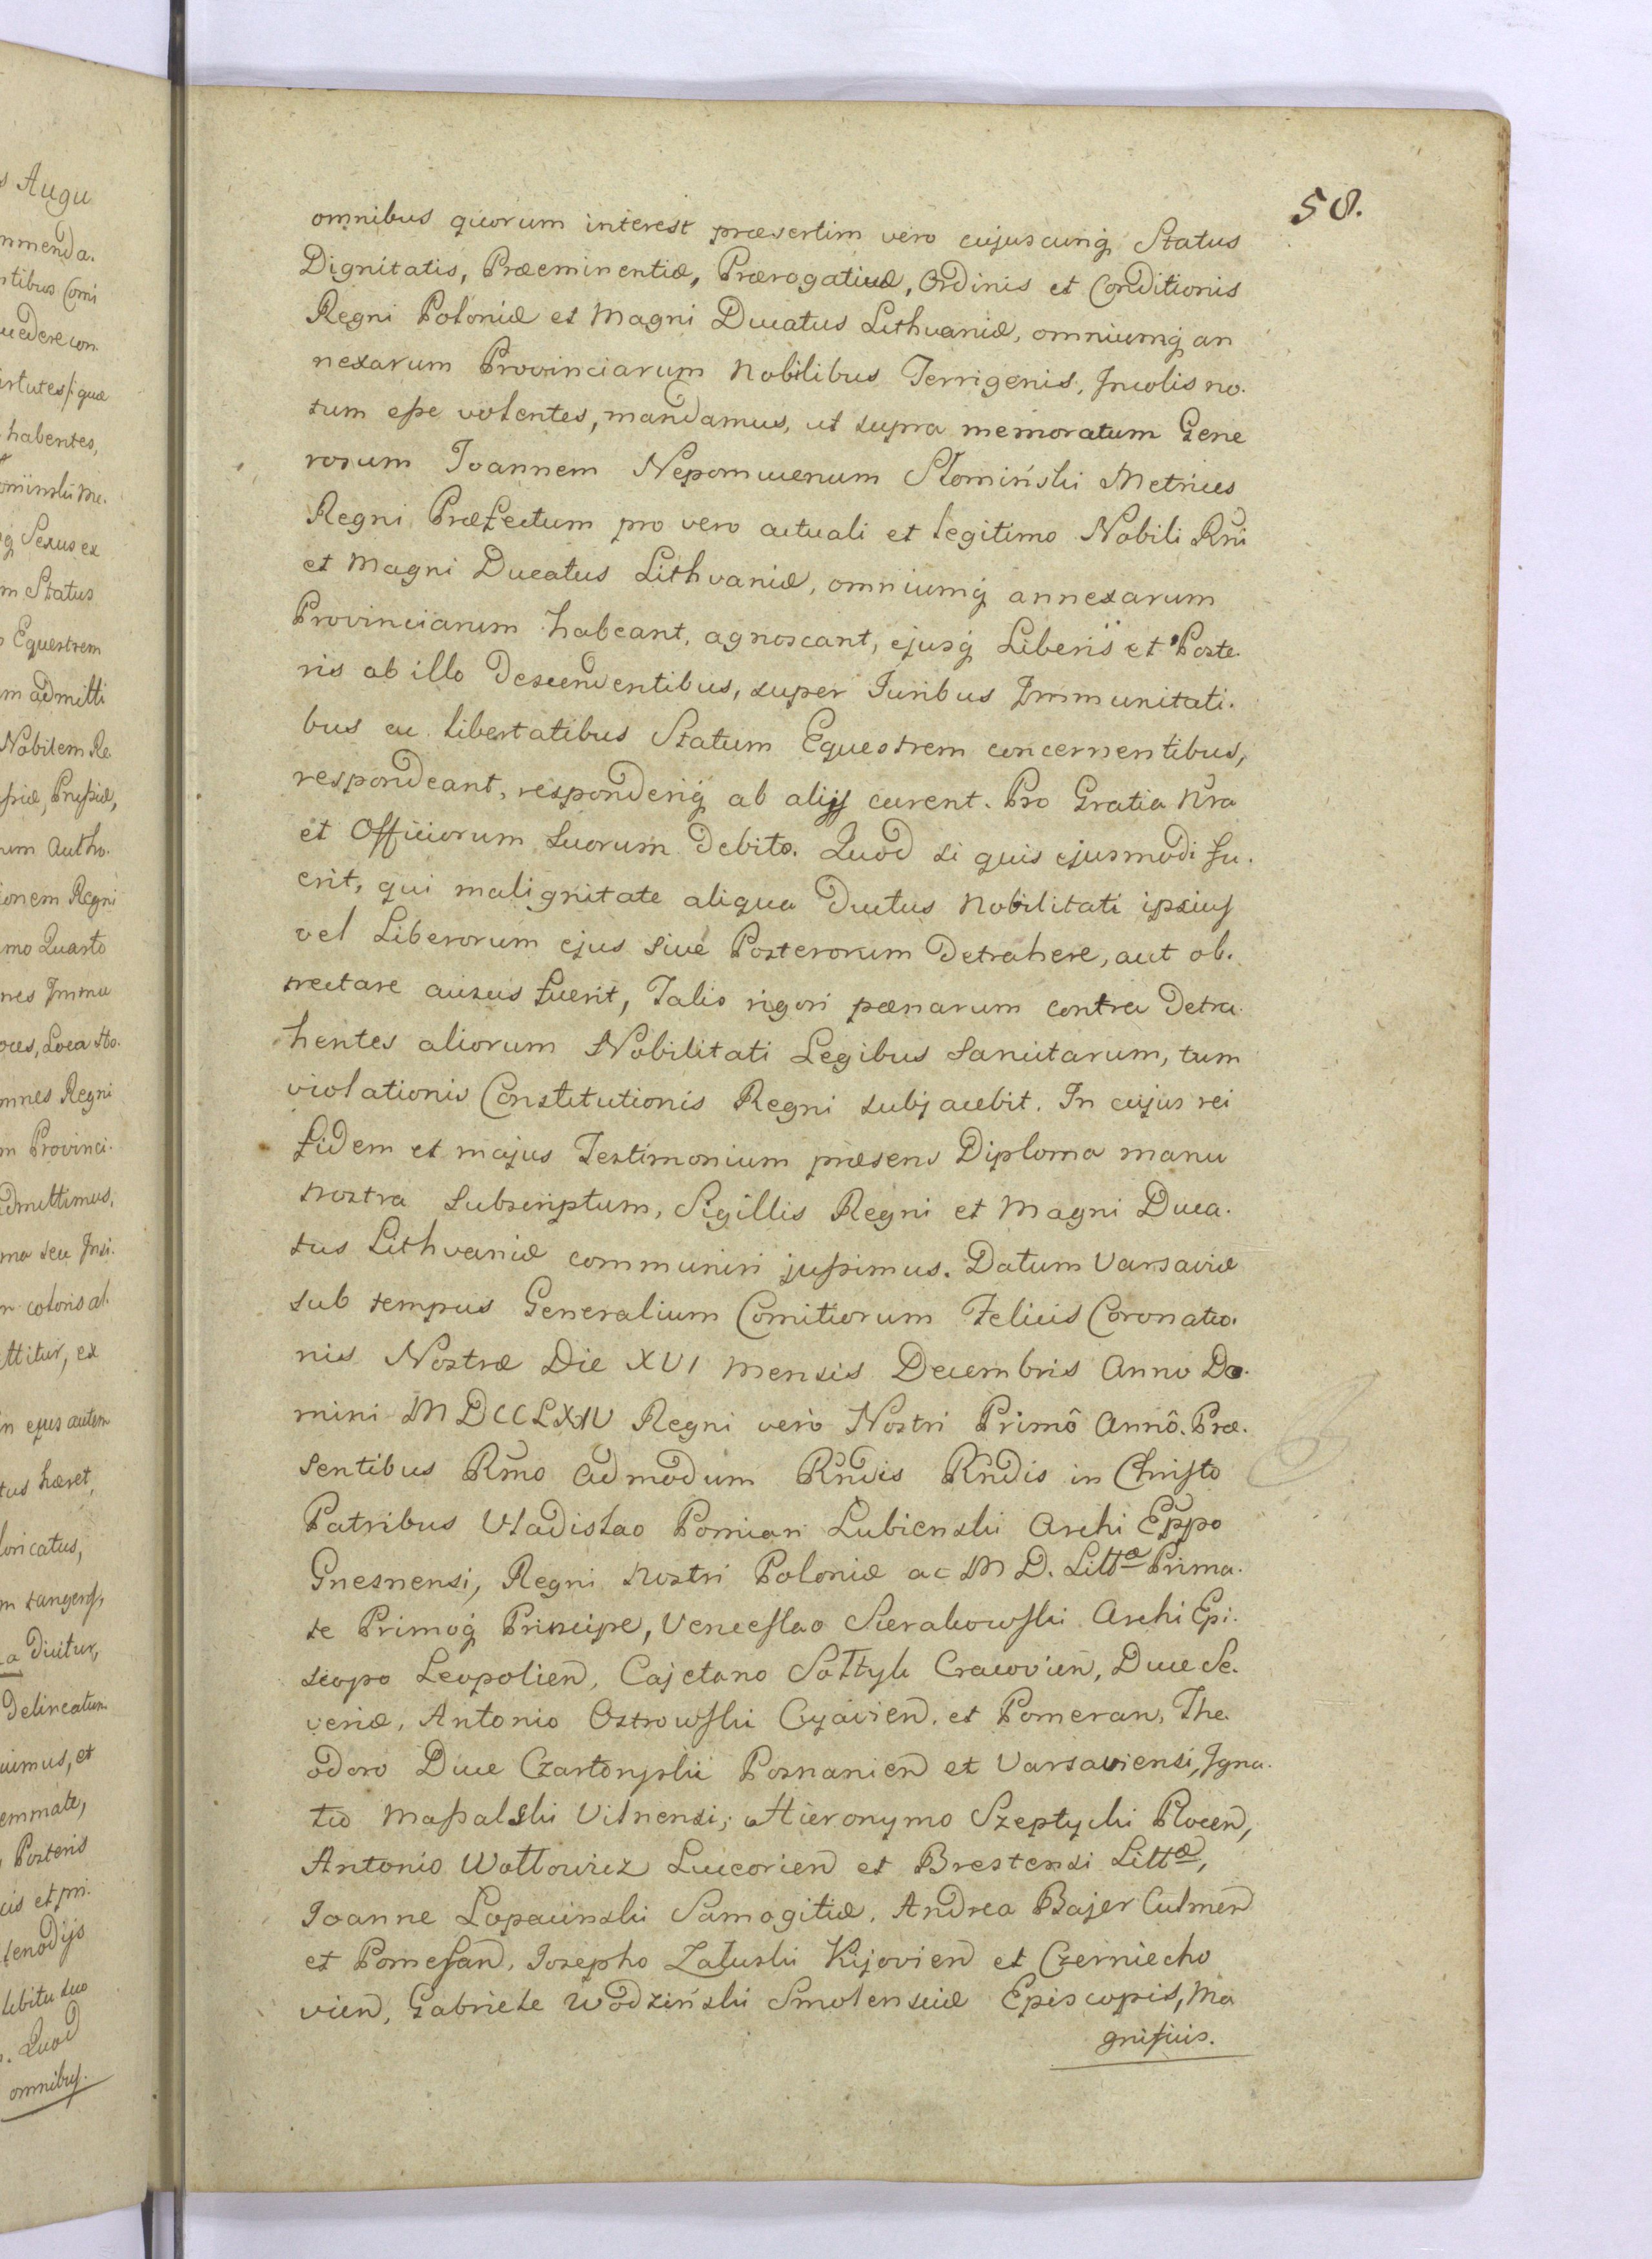 58.
omnibus quorum interest præsertim vero cujuscunq̨ Status
Dignitatis, Præeminentiæ, Prærogativæ, Ordinis et Conditionis
Regni Poloniæ et Magni Ducatus Lithvaniæ, omniumq̨ an
nexarum Provinciarum Nobilibus Terrigenis, Incolis no.
tum eſse volentes, mandamus, ut supra memoratum Gene
rosum Joannem Nepomucenum Słomiński Metrices
Regni Præfectum pro vero actuali et legitimo Nobili Rni
et Magni Ducatus Lithvaniæ, omniumq̨ annexarum
Provinciarum habeant, agnoscant, ejusq̨ Liberis et Poste.
ris ab illo Descendentibus, super Juribus Immunitati.
bus ac libertatibus Statum Equestrem concernentibus,
respondeant, responderiq̨ ab alijs curent. Pro Gratia Nra
et Officiorum suorum Debito. Quod si quis ejusmodi fu.
erit, qui malignitate aliqua Ductus Nobilitati ipsius
vel Liberorum ejus sive Posterorum Detrahere, aut ob.
trectare ausus fuerit, Talis rigori pænarum contra Detra.
hentes aliorum Nobilitati Legibus sancitarum, tum
violationis Constitutionis Regni subjacebit. In cujus rei
fidem et majus Testimonium præsens Diploma manu
nostra subscriptum, Sigillis Regni et Magni Duca.
tus Lithvaniæ communiri juſsimus. Datum Varsaviæ
sub tempus Generalium Comitiorum Felicis Coronatio.
nis Nostræ Die XVI Mensis Decembris Anno Do.
mini MDCCLXIV Regni verò Nostri Primô Annô. Præ.
sentibus Rmo admodum Rndis Rndis in Christo
Patribus Vladislao Pomian Lubienski Archi Eppo
Gnesnensi, Regni Nostri Poloniæ ac M D. Littæ Prima.
te Primoq̨ Principe, Venceslao Sierakowski Archi Epi.
scopo Leopolien, Cajetano Sołtyk Cracovien, Duce Se.
veriæ, Antonio Ostrowski Cujavien, et Pomeran, The.
odoro Duce Czartoryski Posnanien et Varsaviensi, Igna.
tio Maſsalski Vilnensi, Hieronymo Szeptycki Plocen,
Antonio Wołłowicz Luceorien et Brestensi Littæ,
Joanne Łopacinski Samogitiæ, Andrea Bajer Culmen
et Pomesan, Josepho Załuski Kijovien et Czerniecho
vien, Gabriele Wodziński Smolensciæ Episcopis, Ma
gnificis.